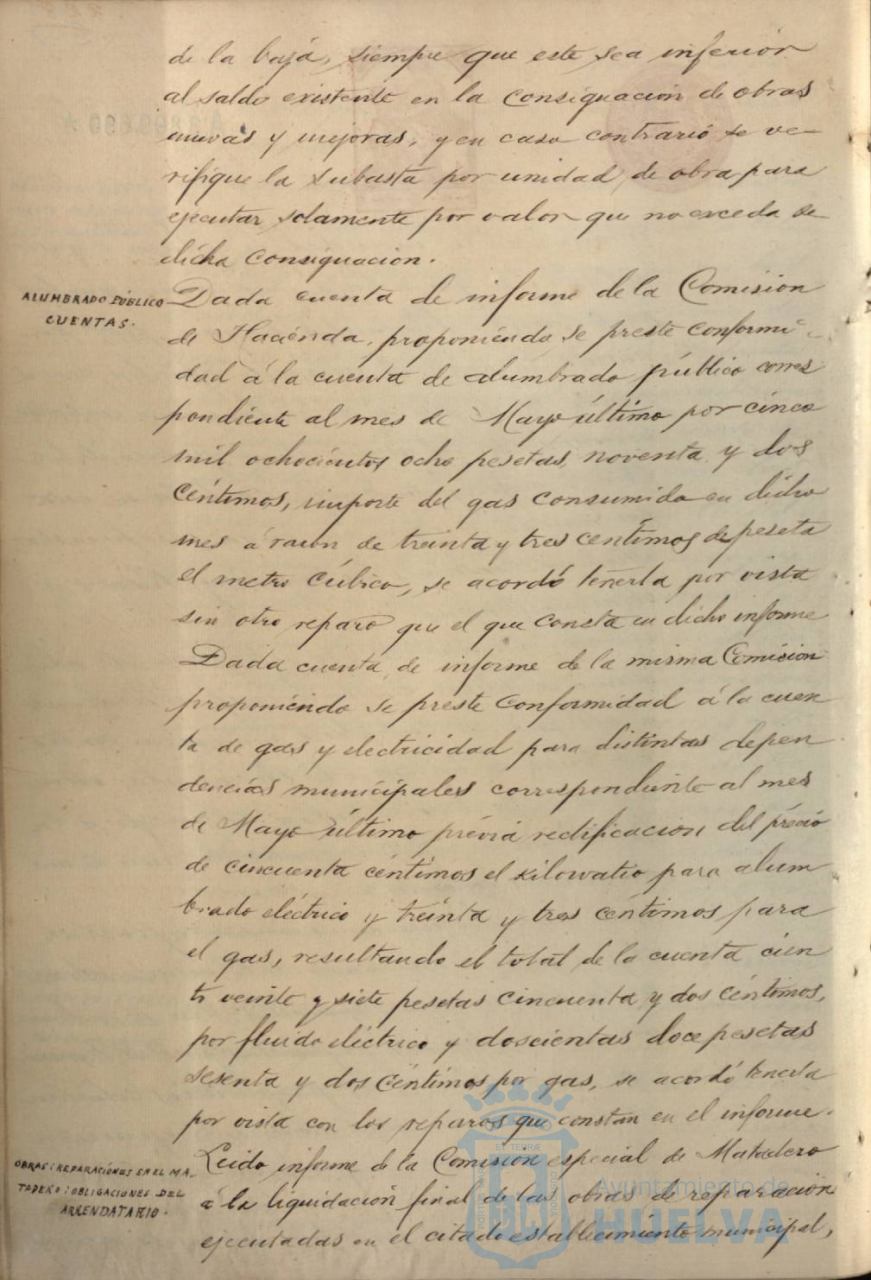 de la baja, siempre que este sea inferior
al saldo existente en la consignación de obras
nuevas y mejoras, y en caso contrario se ve-
rifique la subasta por unidad de obra para
ejecutar solamente por valor que no exceda de
dicha consignacion.
ALUMBRADO PÚBLICO
CUENTAS.
Dada cuenta de informe de la Comision
de Hacienda, proponiendo se preste conformi-
dad á la cuenta de alumbrado público corres
pondiente al mes de Mayo último por cinco
mil ochocientos ocho pesetas, noventa y dos
céntimos, importe del gas consumido en dicho
mes á razon de treinta y tres centimos de peseta
el metro cúbico, se acordó tenerla por vista
sin otro reparo que el que consta en dicho informe
Dada cuenta de informe de la misma Comision
proponiendo se preste conformidad á la cuen
ta de gas y electricidad para distintas depen
dencias municipales correspondiente al mes
de Mayo último prévia rectificacion del précio
de cincuenta céntimos el kilowatio para alum
brado eléctrico y treinta y tres céntimos para
el gas, resultando el total de la cuenta cien
to veinte y siete pesetas cincuenta y dos céntimos,
por fluido eléctrico y doscientas doce pesetas
sesenta y dos céntimos por gas, se acordó tenerla
por vista con los reparos que constan en el informe.
OBRAS: REPARACIONES EN EL MA-
TADERO: OBLIGACIONES DEL
ARRENDATARIO.
Leido informe de la Comision especial de Matadero
á la liquidación final de las obras de reparacion
ejecutadas en el citado establecimiento municipal,
Ayuntamiento de
HUELVA